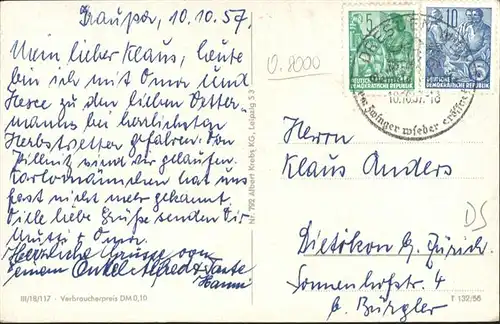 Graupa, 10.10.57.
Mein lieber Klaus, heute
bin ich mit Oma und
zu den lieben Oetter-
manns bei herrlichstem
Herbstwetter gefahren. Von
Pillnitz sind wir gelaufen.
Karlomännchen hat uns
fast nicht mehr gekannt.
Viele liebe Grüße senden Dir
Mutti + Oma.
Herzliche Grüsse von
Deinem Onkel Alfred + Tante
Hanni
III/18/117 · Verbraucherpreis DM 0,10
Nr. 792 Albert Krebs KG, Leipzig S 3
O.8000
5
DEUTSCHE
DEMOKRATISCHE REPUBLIK
10
DEUTSCHE
DEMOKRATISCHE REPUBLIK
DRESDEN
10.10.57.-18
Zwinger wieder eröffnet
Herrn
Klaus Anders
DS
Dietikon b. Zürich
Sonnenhofstr. 4
b. Bürgler
T 132/56